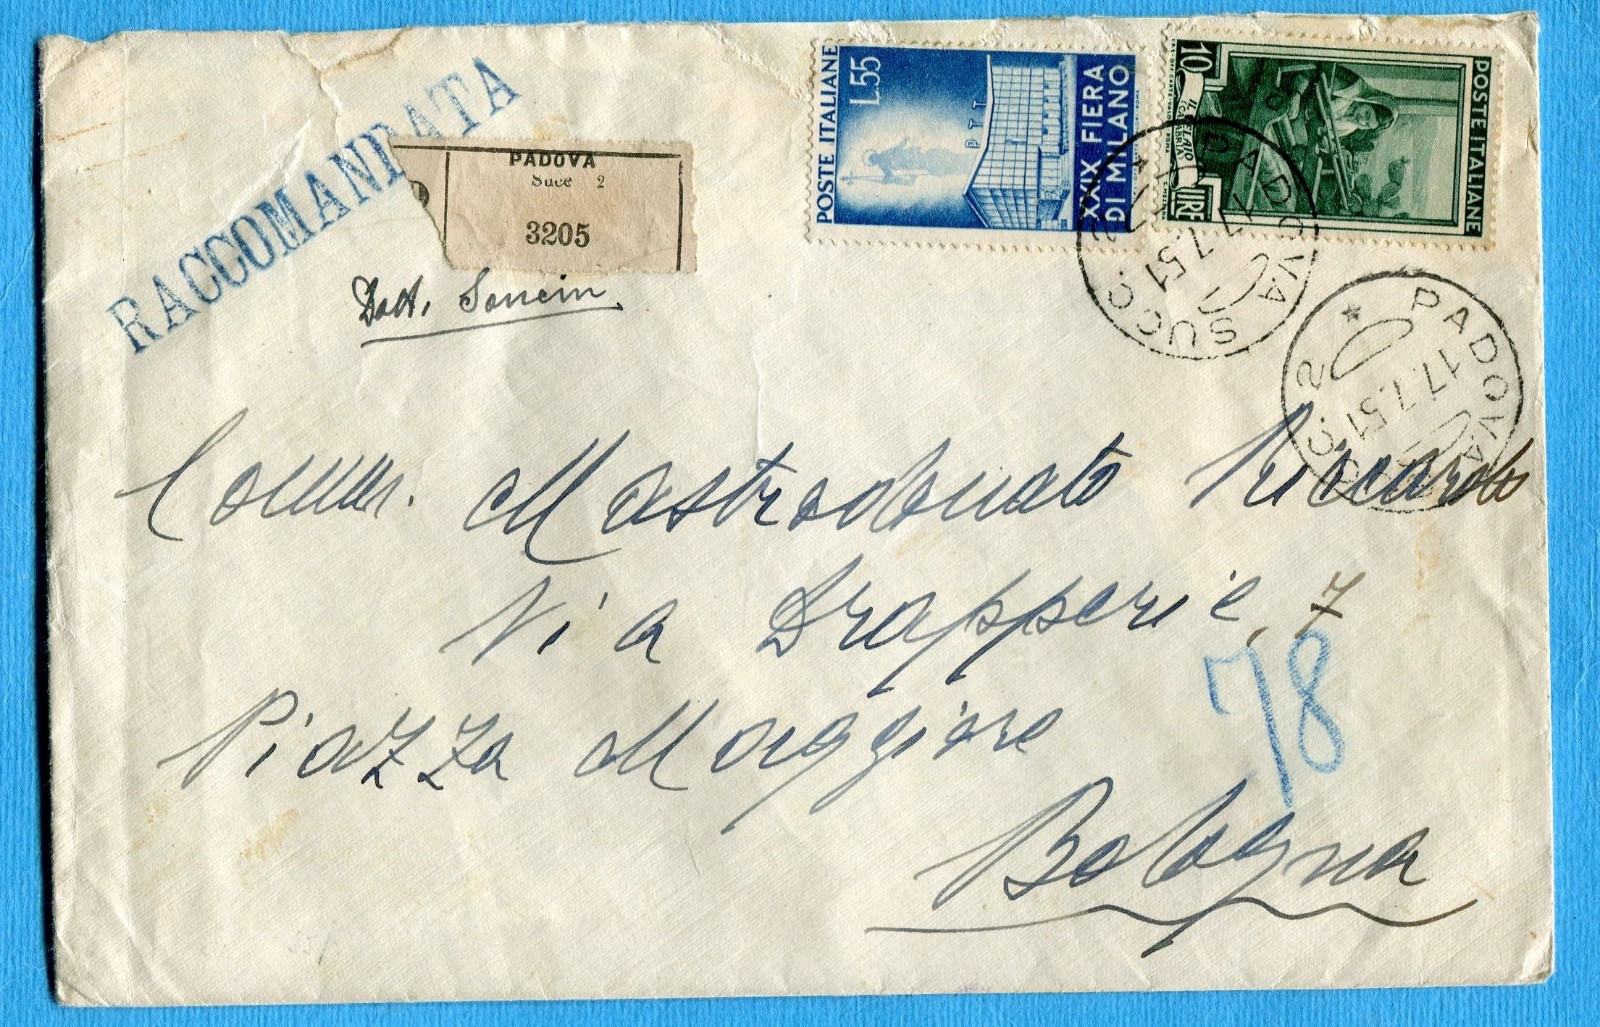 RACCOMANDATA
PADOVA
Succ 2
3205
Dott. Soncin
POSTE ITALIANE
L.55
PTT
XXIX FIERA
DI MILANO
10
LIRE
POSTE ITALIANE
PADOVA SUCC. 2
17.7.51
PADOVA SUCC. 2
17.7.51
Comm. Mastrodonato Riccardo
Via Drapperie, 7
78
Piazza Maggiore
Bologna